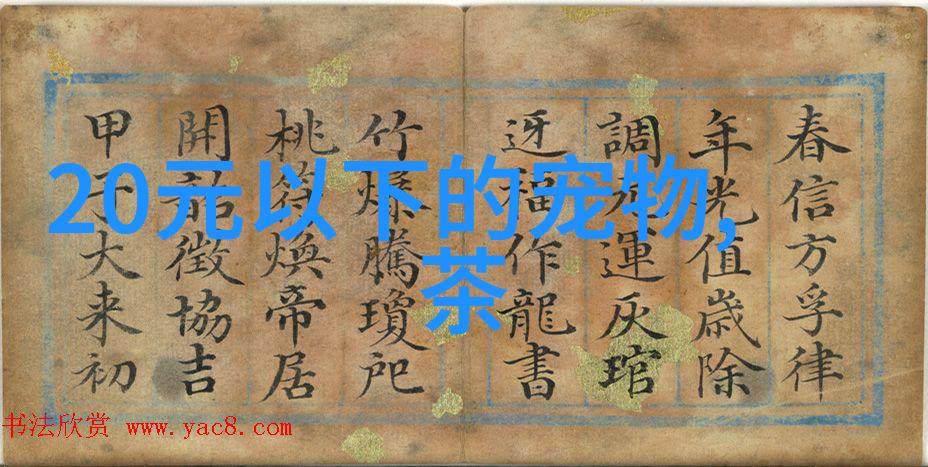 春信方孚律
年光值歲除
調元運灰琯
迓福作龍書
竹爆騰瓊
桃符煥帝居
開韶徵協吉
甲子大来初
20元以下的宠物,
茶
书法欣赏 www.yac8.com